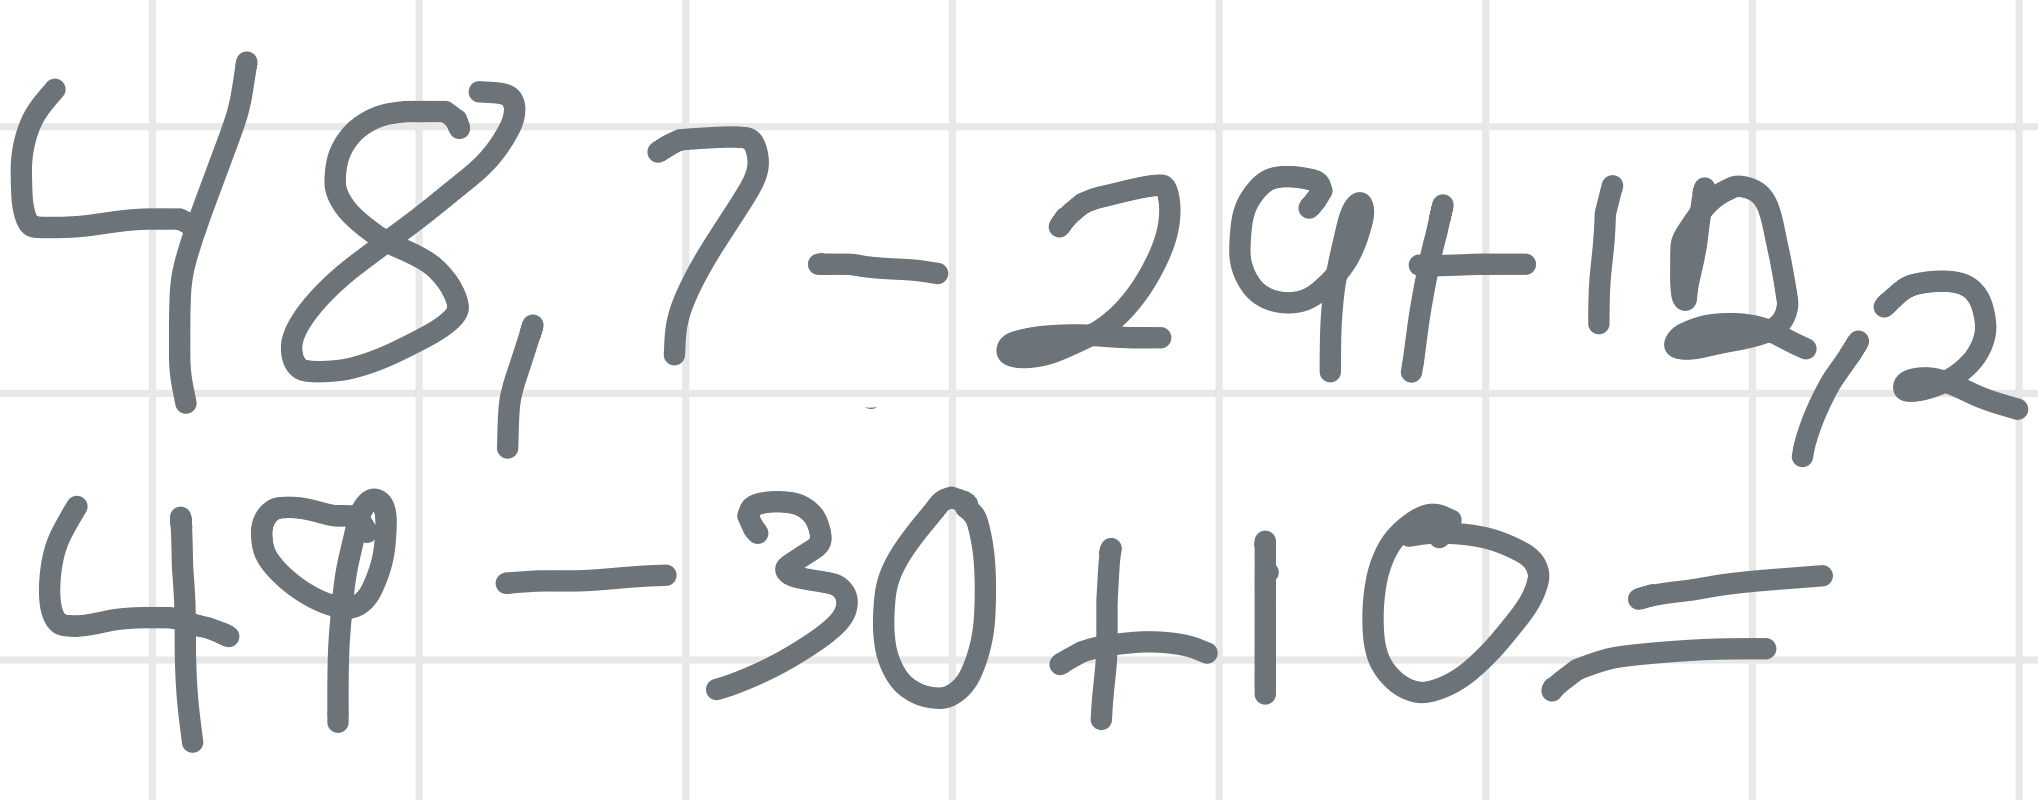 48,7-29+12,2
49-30+10=